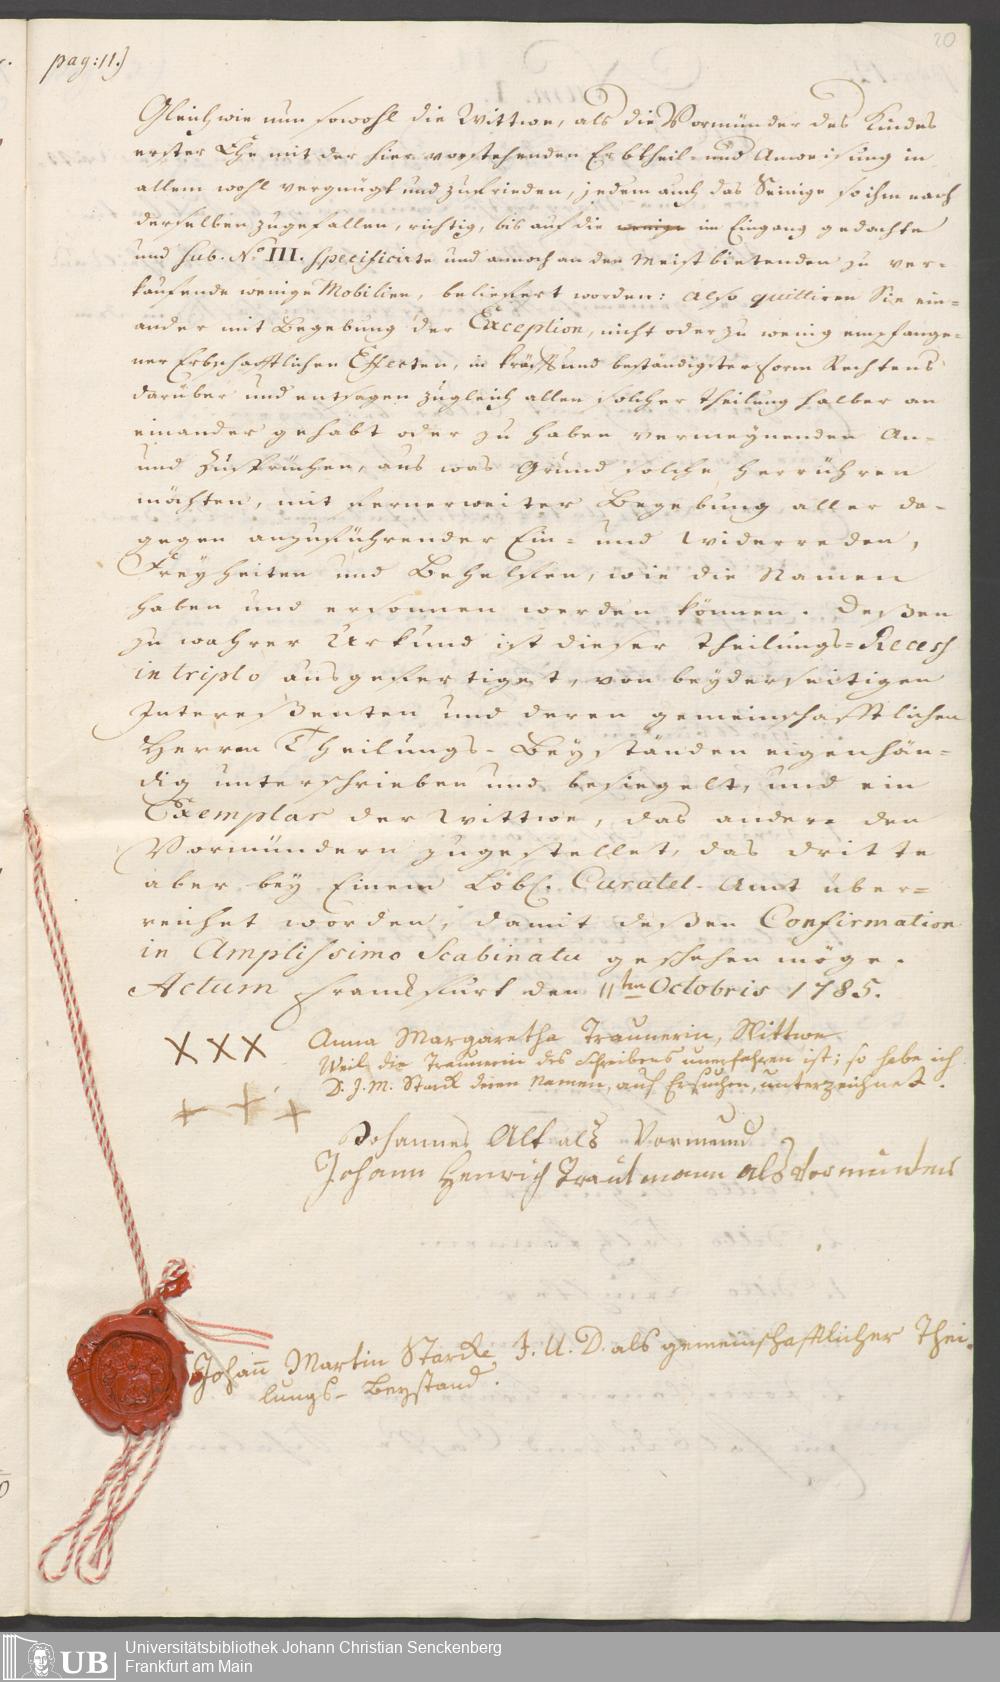 pag: 11.)
20
Gleichwie nun sowohl die Wittwe, als die Vormünder des Kindes
erster Ehe mit der hier vorstehenden Erbtheil- und Anweisung in
allem wohl vergnügt und zufrieden, jedem auch das Seinige so ihm nach
derselben zugefallen, richtig, bis auf die wenige im Eingang gedachte
und sub. No. III. specificirte und annoch an den Meistbietenden zu ver-
kaufende wenige Mobilien, beliefert worden: Also quittiren Sie ein-
ander mit Begebung der Exception, nicht oder zu wenig empfange-
ner Erbschafftlichen Effecten, in kräfft und beständigster Form Rechtens
darüber und entsagen zugleich allen solcher Theilung halber an
einander gehabt oder zu haben vermeynenden An-
und Zusprüchen, aus was Grund solche herrühren
möchten, mit fernerweiter Begebung aller da-
gegen anzuführender Ein- und Widerreden,
Freyheiten und Behelffen, wie die Namen
haben und ersonnen werden können. Deßen
zu wahrer Urkund ist dieser Theilungs-Recess
in triplo ausgefertiget, von beyderseitigen
Intereßenten und deren gemeinschafftlichen
Herrn Theilungs-Beyständen eigenhän-
dig unterschrieben und besiegelt, und ein
Exemplar der Wittwe, das andere den
Vormündern zugestellet, das dritte
aber bey Einem Löbl. Curatel-Amt über-
reichet worden, damit deßen Confirmation
in Amplissimo Scabinatu geschehen möge.
Actum Franckfurt den 11ten Octobris 1785.
XXX Anna Margaretha Traunerin, Wittwe
Weil die Traunerin des Schreibens unerfahren ist; so habe ich
D. J. M. Starck deren Namen, auf Ersuchen, unterzeichnet.
+ + +
Johannes Alt als Vormund
Johann Henrich Trautmann als Vormünder
Johann Martin Starcke J. U. D. als gemeinschafftlicher Thei-
lungs-Beystand.
UB
Universitätsbibliothek Johann Christian Senckenberg
Frankfurt am Main